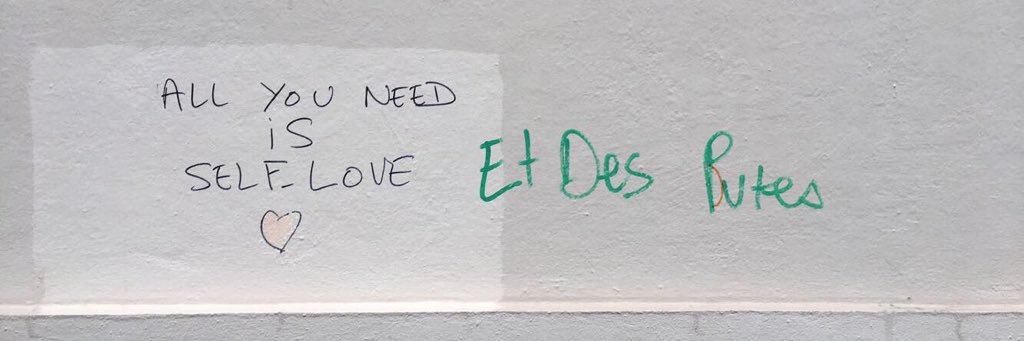 ALL YOU NEED
iS
SELF-LOVE
Et Des Putes